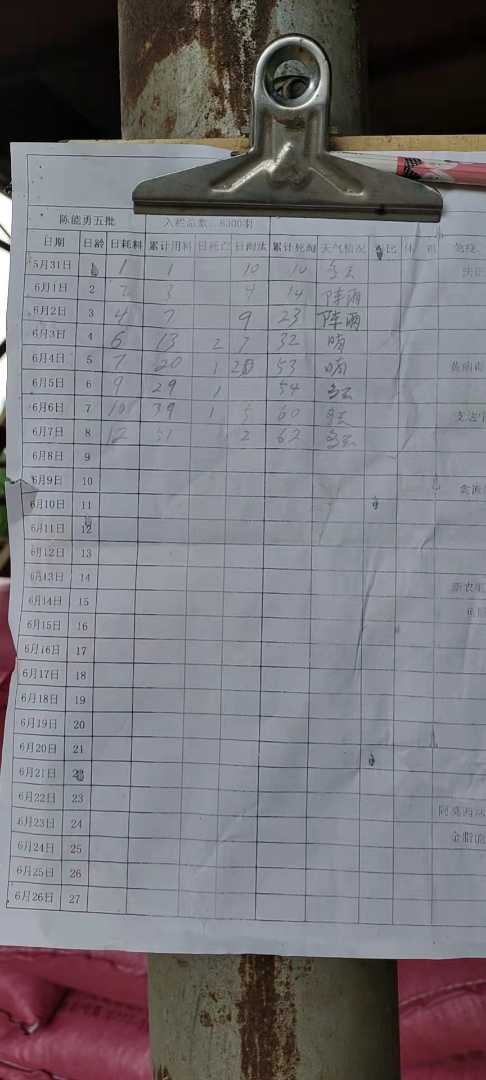 陈能勇五批 入栏总数：6300羽
日期 日龄 日耗料 累计用料 日死亡 日淘汰 累计死淘 天气情况 比 体
5月31日 1 1 10 10 多云
6月1日 2 2 3 4 14 阵雨
6月2日 3 4 7 9 23 阵雨
6月3日 4 6 13 2 7 32 晴
6月4日 5 7 20 1 20 53 晴
6月5日 6 9 29 1 54 多云
6月6日 7 10 39 1 5 60 多云
6月7日 8 12 51 2 62 多云
6月8日 9
6月9日 10
6月10日 11
6月11日 12
6月12日 13
6月13日 14
6月14日 15
6月15日 16
6月16日 17
6月17日 18
6月18日 19
6月19日 20
6月20日 21
6月21日
6月22日 23
6月23日 24
6月24日 25
6月25日 26
6月26日 27